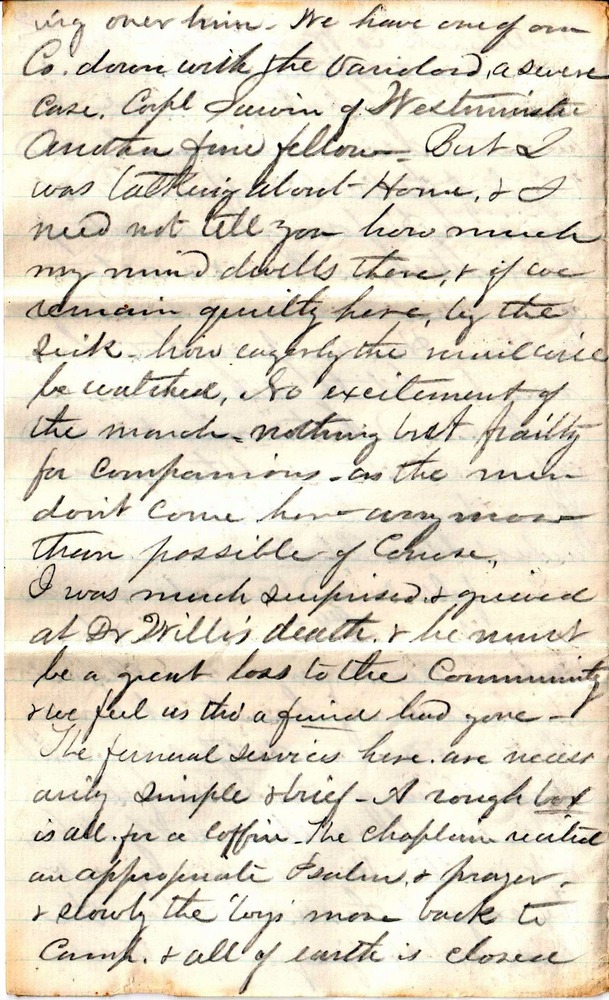 ing over him. We have one of our
Co. down with the Varioloid, a severe
case. Corpl Sawin of Westminster
Another fine fellow - But I
was talking about Home, & I
need not tell you how much
my mind dwells there, & if we
remain quietly here, by the
sick - how eagerly the mail will
be watched, No excitement of
the march - nothing but
for companions - as the men
don't come here any more
than possible of Course,
I was much surprised & grieved
at Dr Willis death. & he must
be a great loss to the Community
& we feel as tho a friend had gone -
The funeral services here are necess
arily simple & brief - A rough box
is all for a Coffin - The chaplain recited
an appropriate Psalm, & prayer -
& slowly the 'boys' move back to
Camp. & all of earth is closed